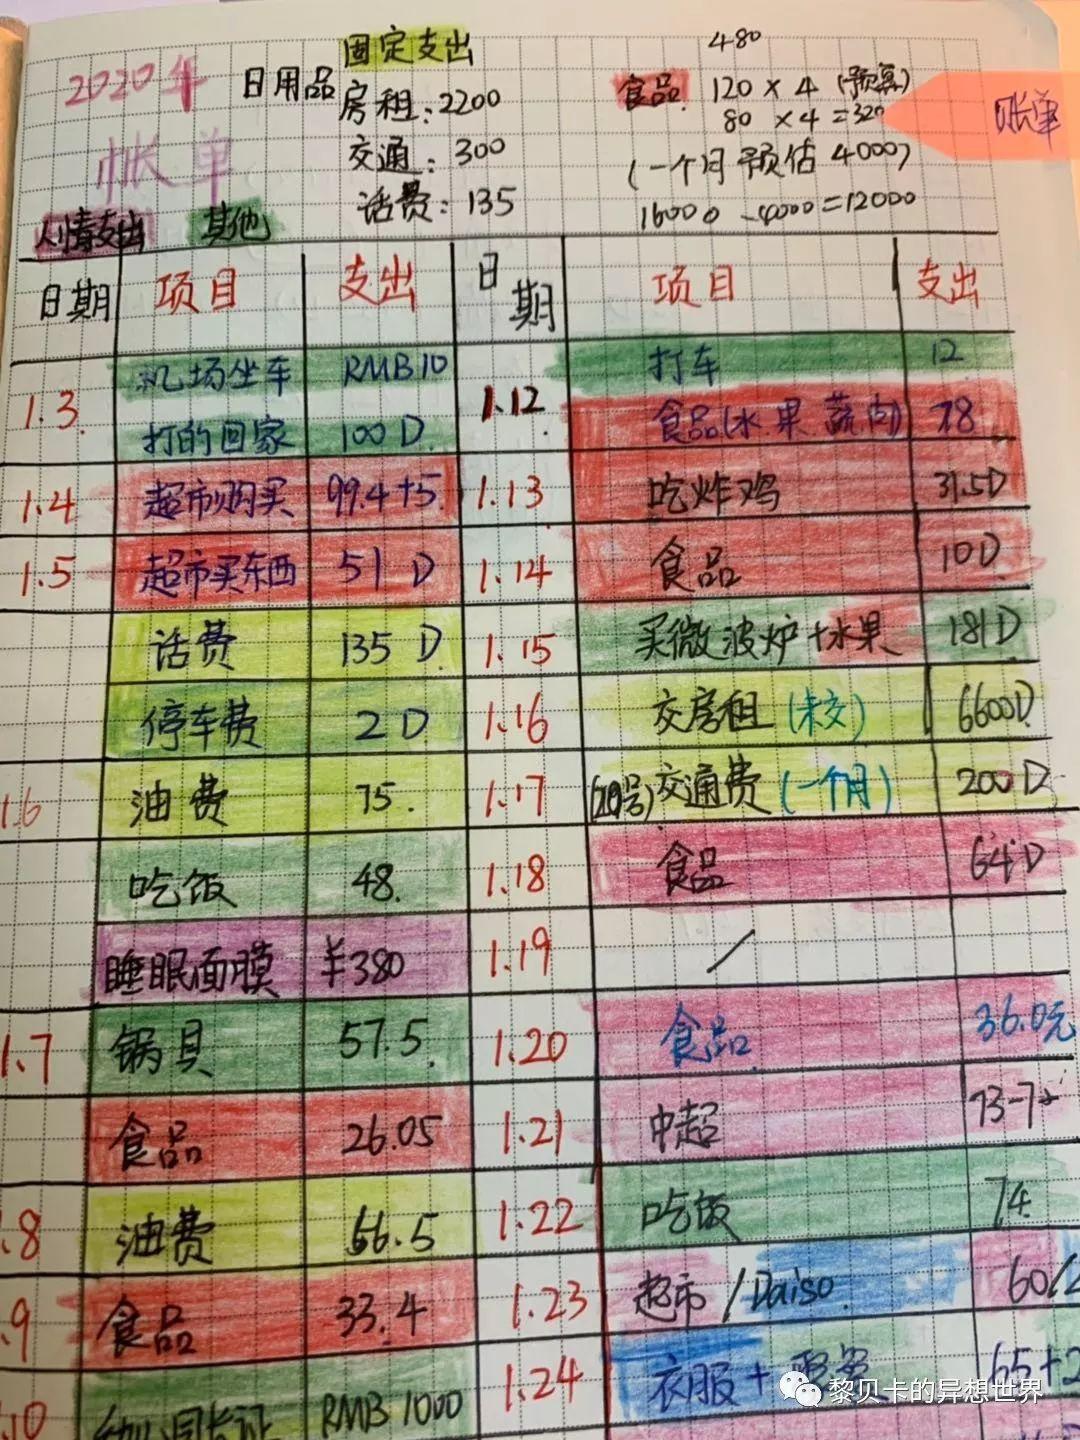 2020年
帐单
日用品
固定支出
房租:2200
交通:300
话费:135
480
食品 120×4(预算)
80×4=320
(一个月预估4000)
16000-4000=12000
账单
人情支出 其他
日期 项目 支出 日期 项目 支出
1.3 机场坐车 RMB10
打的回家 100D
1.4 超市购买 99.4+5
1.5 超市买东西 51D
话费 135D
停车费 2D
1.6 油费 75.
吃饭 48.
睡眠面膜 ¥380
1.7 锅具 57.5.
食品 26.05
.8 油费 66.5
.9 食品 33.4
.10 RMB1000
1.12 打车 12
食品(水果蔬肉) 78
1.13 吃炸鸡 31.5D
1.14 食品 10D
1.15 买微波炉+水果 181D
1.16 交房租(未交) 6600D
1.17 (20号)交通费(一个月) 200D
1.18 食品 64D
1.19 /
1.20 食品 36.0元
1.21 中超
1.22 吃饭 74
1.23 超市/Daiso 60/2
1.24 衣服+ 65+2
黎贝卡的异想世界